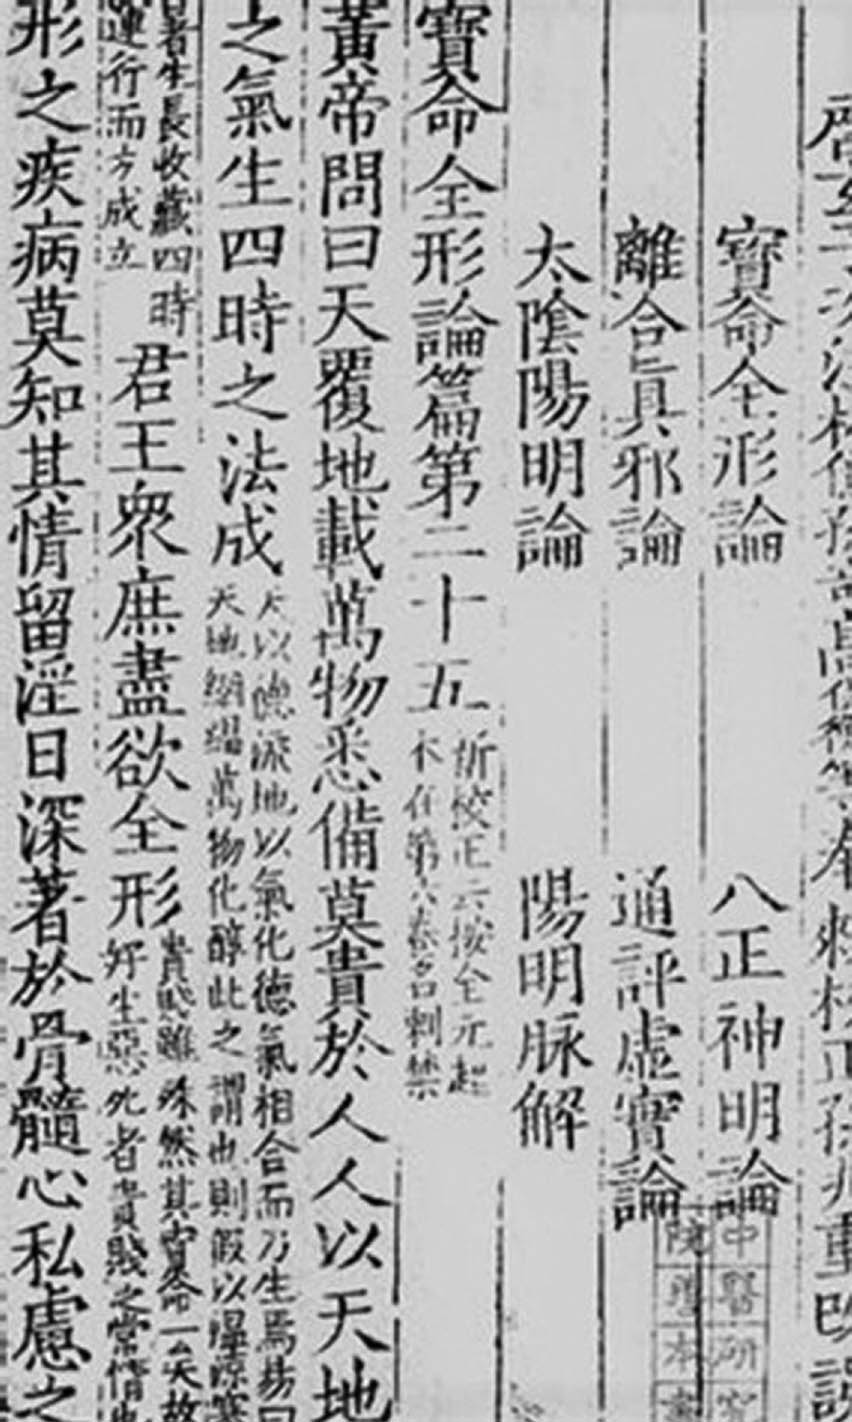 次注林億孫高保衡等奉敕校正孫兆重改誤
寶命全形論 八正神明論
離合真邪論 通評虛實論
太陰陽明論 陽明脉解
寶命全形論篇第二十五
新校正云按全元起
本在第六卷名刺禁
黃帝問曰天覆地載萬物悉備莫貴於人人以天地
之氣生四時之法成
天以德流地以氣化德氣相合而乃生焉易曰
天地絪縕萬物化醇此之謂也則假以溫涼寒
暑生長收藏四時
運行而方成立
君王衆庶盡欲全形
貴賤雖殊然其寶命一矣故
好生惡死者貴賤之常情也
形之疾病莫知其情留淫日深著於骨髓心私慮之
中醫研究
院
本